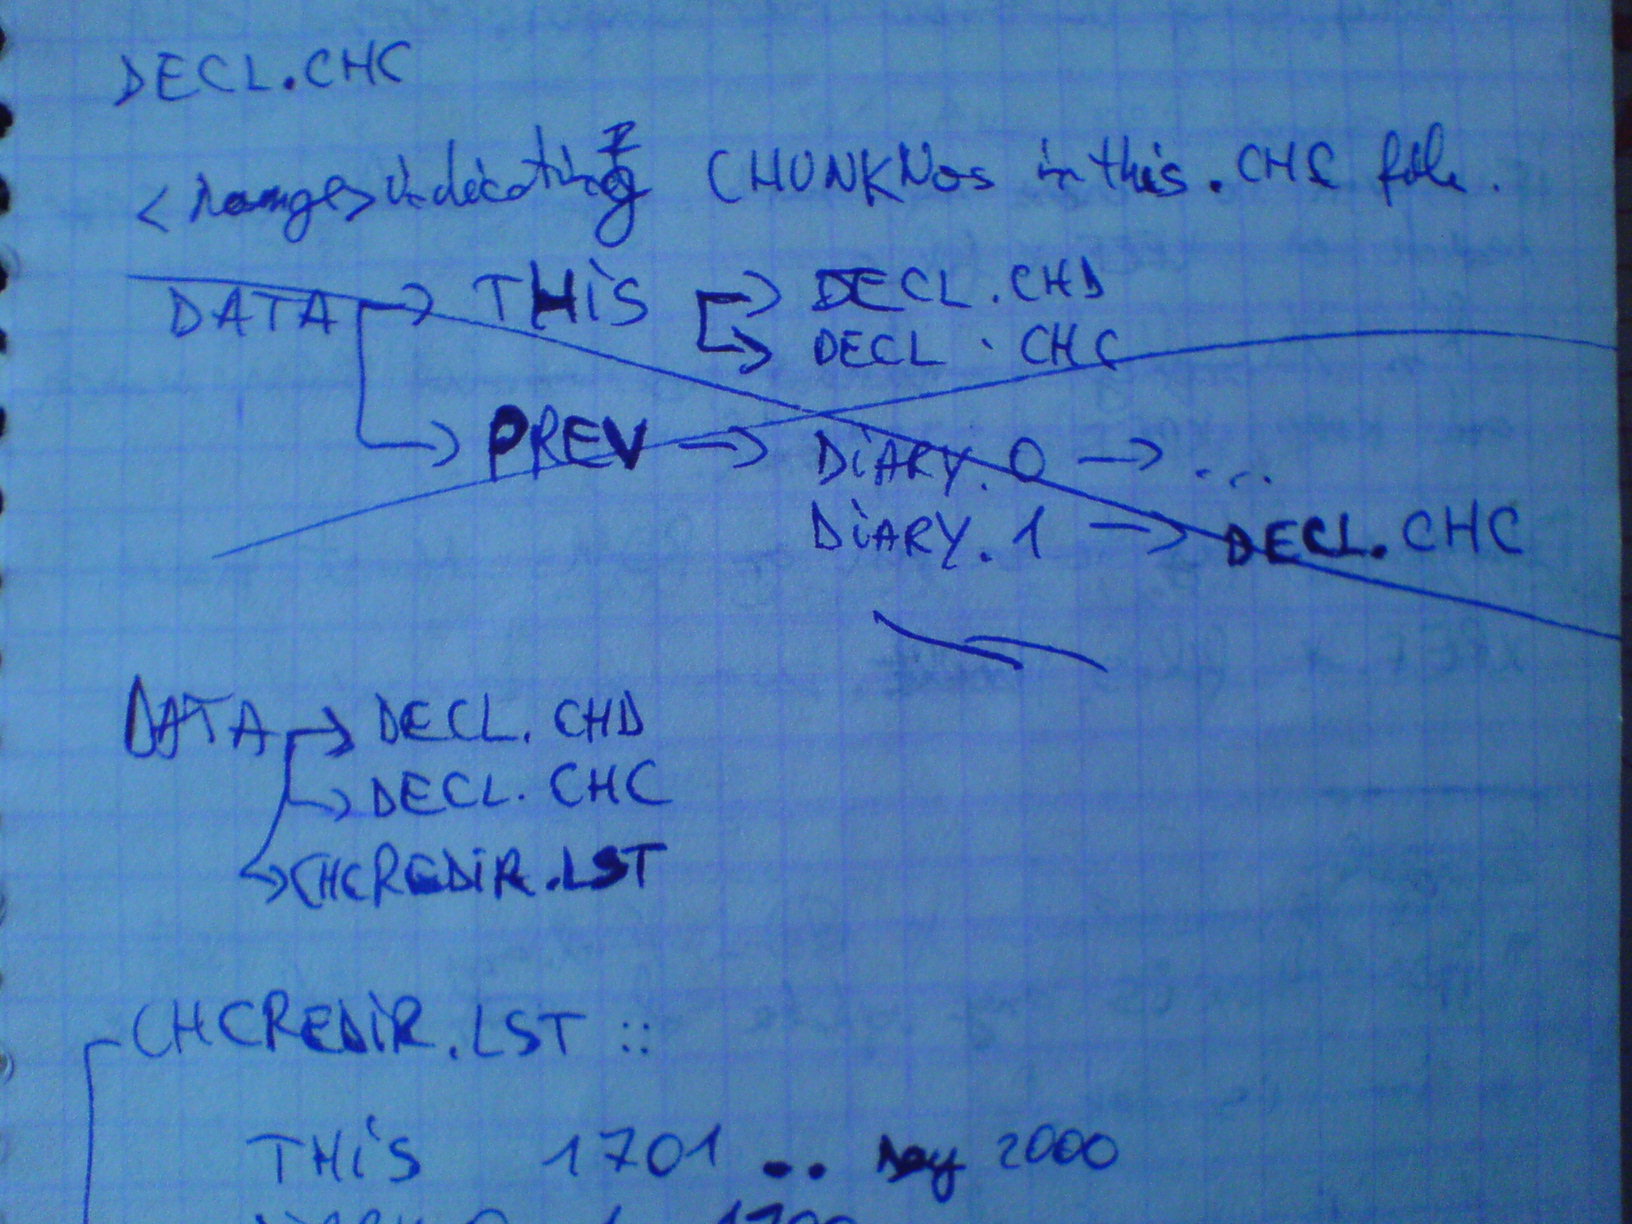 DECL.CHC
<range> indicating CHUNKNos in this .CHC file.
DATA → THIS → DECL.CHD
→ DECL.CHC
→ PREV → DIARY.0 → ...
DIARY.1 → DECL.CHC
DATA → DECL.CHD
→ DECL.CHC
→ CHCREDIR.LST
CHCREDIR.LST ::
THIS 1701 .. say 2000